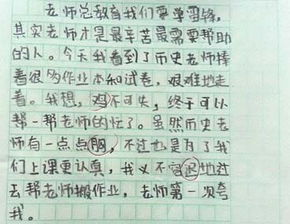 老师总教育我们要学雷锋，
其实老师才是最辛苦最需要帮助
的人。今天我看到了历史老师捧
着很多作业本和试卷，艰难地走
着。我想，鸡不可失，终于可以
帮一帮老师的忙了。虽然历史老
师有一点点胸，不过也是为了我
们上课更认真，我义不容迟地过
去帮老师搬作业，老师第一次夸
我。